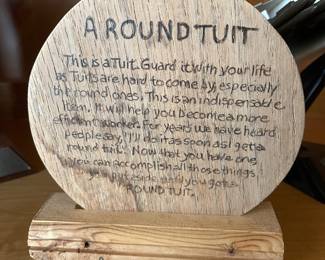 A ROUND TUIT
This is a Tuit. Guard it with your life
as Tuits are hard to come by, especially
the round ones. This is an indispensable
item. It will help you become a more
efficient worker. For years we have heard
people say, "I'll do it as soon as I get a
round tuit." Now that you have one,
you can accomplish all those things
you put aside until you got a
ROUND TUIT.